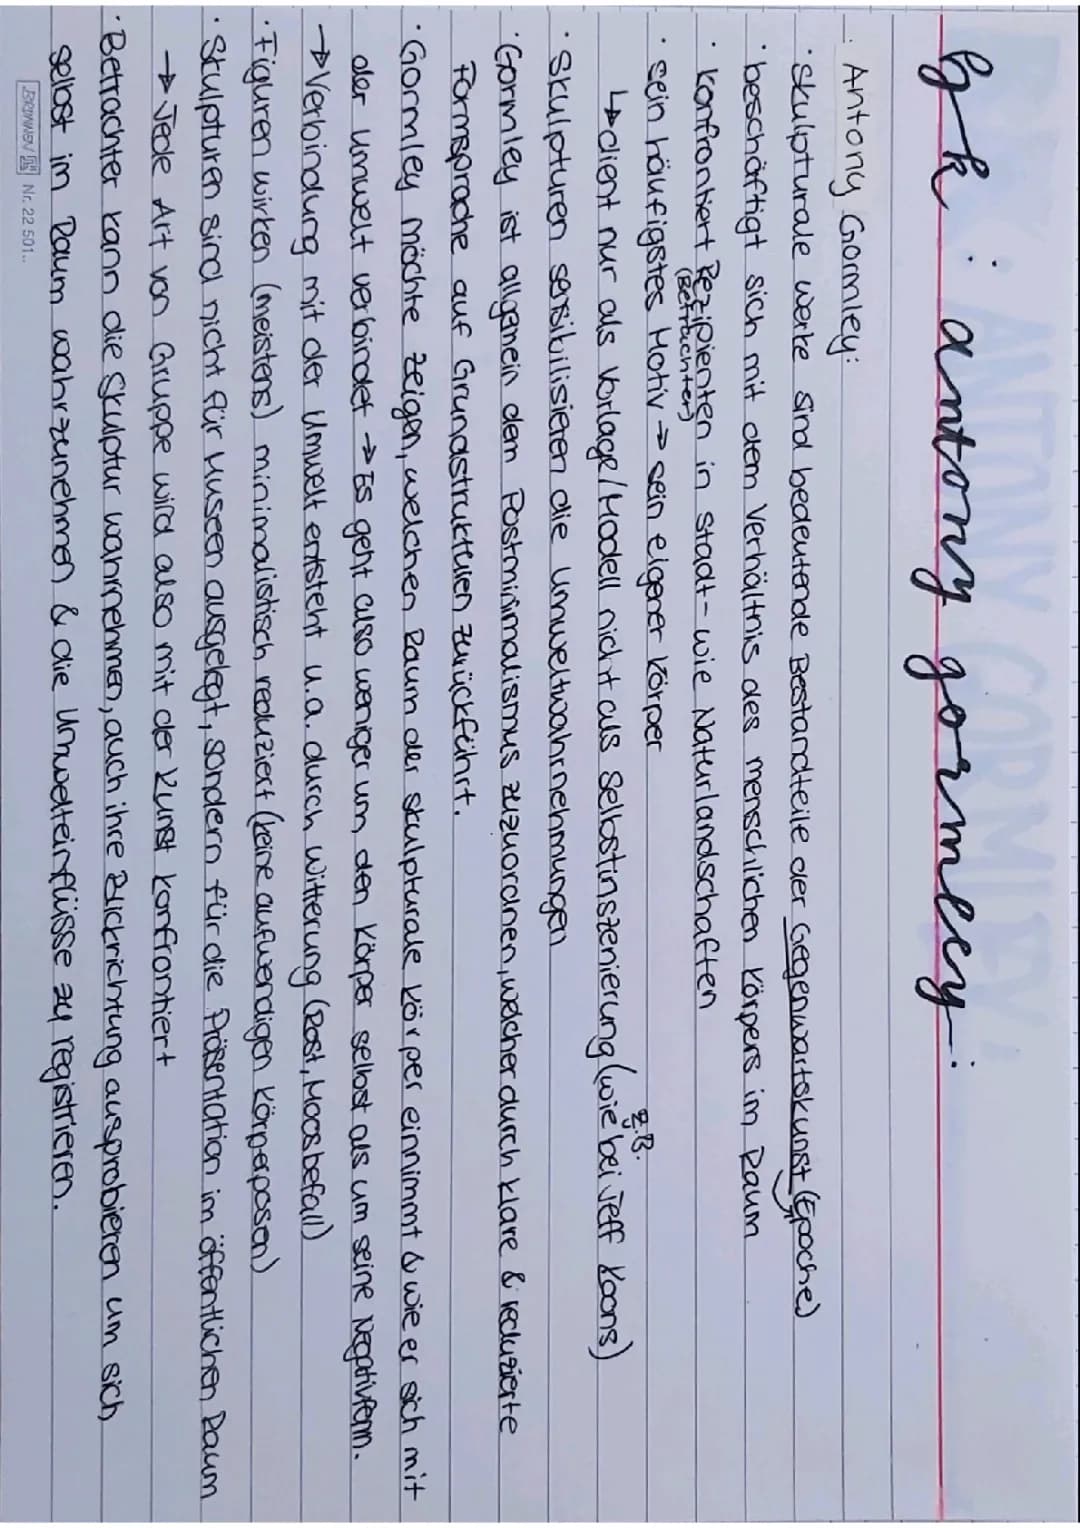 bk: antony gormley:
Antony Gormley:
· Skulpturale Werke sind bedeutende Bestandteile der Gegenwartskunst (Epoche)
· beschäftigt sich mit dem Verhältnis des menschlichen Körpers im Raum
· konfrontiert Rezipienten in Stadt- wie Naturlandschaften
(Betrachter)
· sein häufigstes Motiv → sein eigener Körper
↳ dient nur als Vorlage/Modell nicht als Selbstinszenierung (wie z.B. bei Jeff Koons)
· Skulpturen sensibilisieren die Umweltwahrnehmungen
· Gormley ist allgemein dem Postminimalismus zuzuordnen, welcher durch klare & reduzierte
Formsprache auf Grundstrukturen zurückführt.
· Gormley möchte zeigen, welchen Raum der skulpturale Körper einnimmt & wie er sich mit
der Umwelt verbindet → Es geht also weniger um, den Körper selbst als um seine Negativform.
→ Verbindung mit der Umwelt entsteht u.a. durch Witterung (Rost, Moosbefall)
· Figuren wirken (meistens) minimalistisch reduziert (keine aufwendigen Körperposen)
· Skulpturen sind nicht für Museen ausgelegt, sondern für die Präsentation im öffentlichen Raum
→ Jede Art von Gruppe wird also mit der Kunst konfrontiert
· Betrachter kann die Skulptur wahrnehmen, auch ihre Blickrichtung ausprobieren um sich
selbst im Raum wahrzunehmen & die Umwelteinflüsse zu registrieren.
BRUNNEN Nr. 22 501..